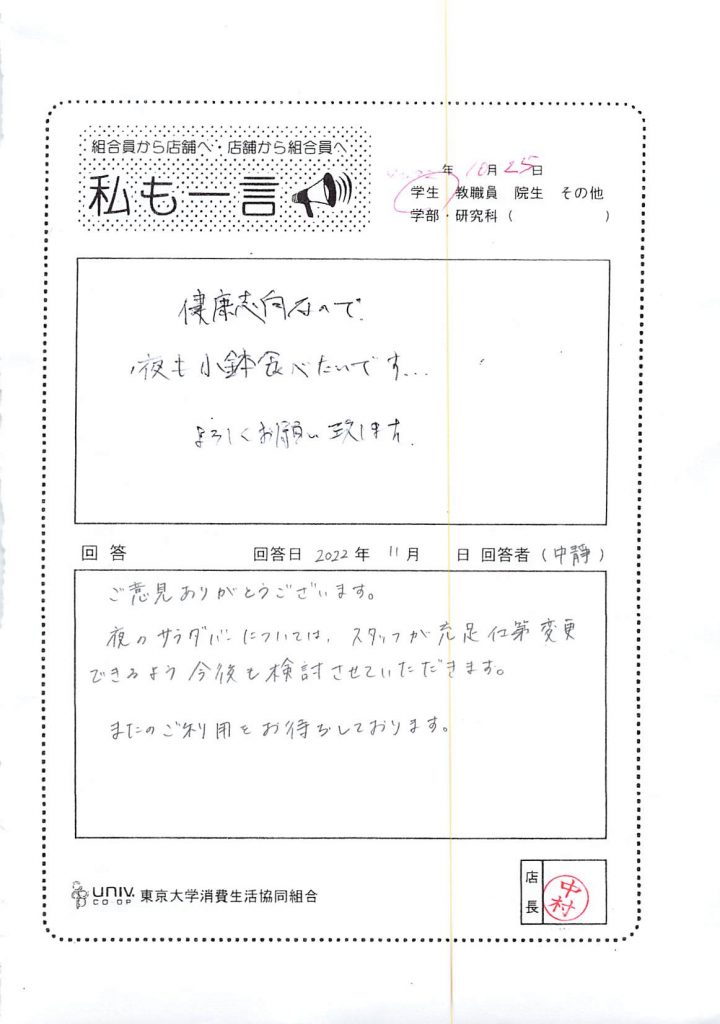 組合員から店舗へ・店舗から組合員へ
私も一言
年 10月25日
学生 教職員 院生 その他
学部・研究科（ ）
健康志向なので
夜も小鉢食べたいです...
よろしくお願い致します.
回答 回答日 2022年 11月 日 回答者（中静）
ご意見ありがとうございます。
夜のサラダバーについては、スタッフが充足仕第変更
できるよう今後も検討させていただきます。
またのご利用をお待ちしております。
UNIV. CO-OP 東京大学消費生活協同組合
店長 中村